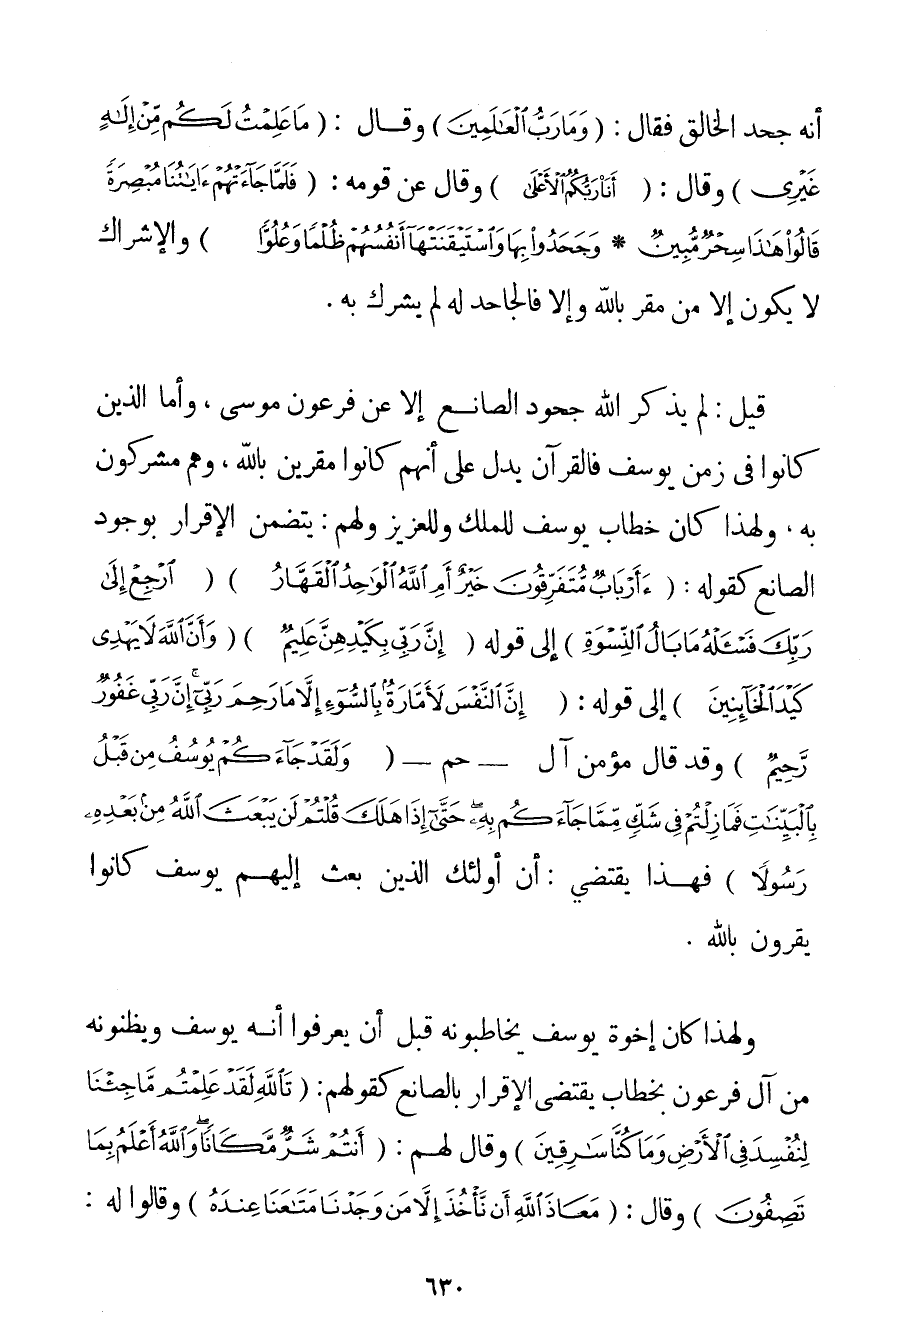 أنه جحد الخالق فقال : ( وَمَا رَبُّ ٱلْعَٰلَمِينَ ) وقال : ( مَا عَلِمْتُ لَكُم مِّنْ إِلَٰهٍ
غَيْرِى ) وقال : ( أَنَا۠ رَبُّكُمُ ٱلْأَعْلَىٰ ) وقال عن قومه : ( فَلَمَّا جَآءَتْهُمْ ءَايَٰتُنَا مُبْصِرَةً
قَالُوا۟ هَٰذَا سِحْرٌ مُّبِينٌ * وَجَحَدُوا۟ بِهَا وَٱسْتَيْقَنَتْهَآ أَنفُسُهُمْ ظُلْمًا وَعُلُوًّا ) والإشراك
لا يكون إلا من مقر بالله وإلا فالجاحد له لم يشرك به .
قيل : لم يذكر الله جحود الصانع إلا عن فرعون موسى ، وأما الذين
كانوا فى زمن يوسف فالقرآن يدل على أنهم كانوا مقرين بالله ، وهم مشركون
به ، ولهذا كان خطاب يوسف للملك وللعزيز ولهم : يتضمن الإقرار بوجود
الصانع كقوله : ( ءَأَرْبَابٌ مُّتَفَرِّقُونَ خَيْرٌ أَمِ ٱللَّهُ ٱلْوَٰحِدُ ٱلْقَهَّارُ ) ( ٱرْجِعْ إِلَىٰ
رَبِّكَ فَسْـَٔلْهُ مَا بَالُ ٱلنِّسْوَةِ ) إلى قوله ( إِنَّ رَبِّى بِكَيْدِهِنَّ عَلِيمٌ ) ( وَأَنَّ ٱللَّهَ لَا يَهْدِى
كَيْدَ ٱلْخَآئِنِينَ ) إلى قوله : ( إِنَّ ٱلنَّفْسَ لَأَمَّارَةٌۢ بِٱلسُّوٓءِ إِلَّا مَا رَحِمَ رَبِّىٓ ۚ إِنَّ رَبِّى غَفُورٌ
رَّحِيمٌ ) وقد قال مؤمن آل — حم — ( وَلَقَدْ جَآءَكُمْ يُوسُفُ مِن قَبْلُ
بِٱلْبَيِّنَٰتِ فَمَا زِلْتُمْ فِى شَكٍّ مِّمَّا جَآءَكُم بِهِۦ ۖ حَتَّىٰٓ إِذَا هَلَكَ قُلْتُمْ لَن يَبْعَثَ ٱللَّهُ مِنۢ بَعْدِهِۦ
رَسُولًا ) فهذا يقتضي : أن أولئك الذين بعث إليهم يوسف كانوا
يقرون بالله .
ولهذا كان إخوة يوسف يخاطبونه قبل أن يعرفوا أنه يوسف ويظنونه
من آل فرعون بخطاب يقتضى الإقرار بالصانع كقولهم : ( تَٱللَّهِ لَقَدْ عَلِمْتُم مَّا جِئْنَا
لِنُفْسِدَ فِى ٱلْأَرْضِ وَمَا كُنَّا سَٰرِقِينَ ) وقال لهم : ( أَنتُمْ شَرٌّ مَّكَانًا ۖ وَٱللَّهُ أَعْلَمُ بِمَا
تَصِفُونَ ) وقال : ( مَعَاذَ ٱللَّهِ أَن نَّأْخُذَ إِلَّا مَن وَجَدْنَا مَتَٰعَنَا عِندَهُۥٓ ) وقالوا له :
٦٣٠